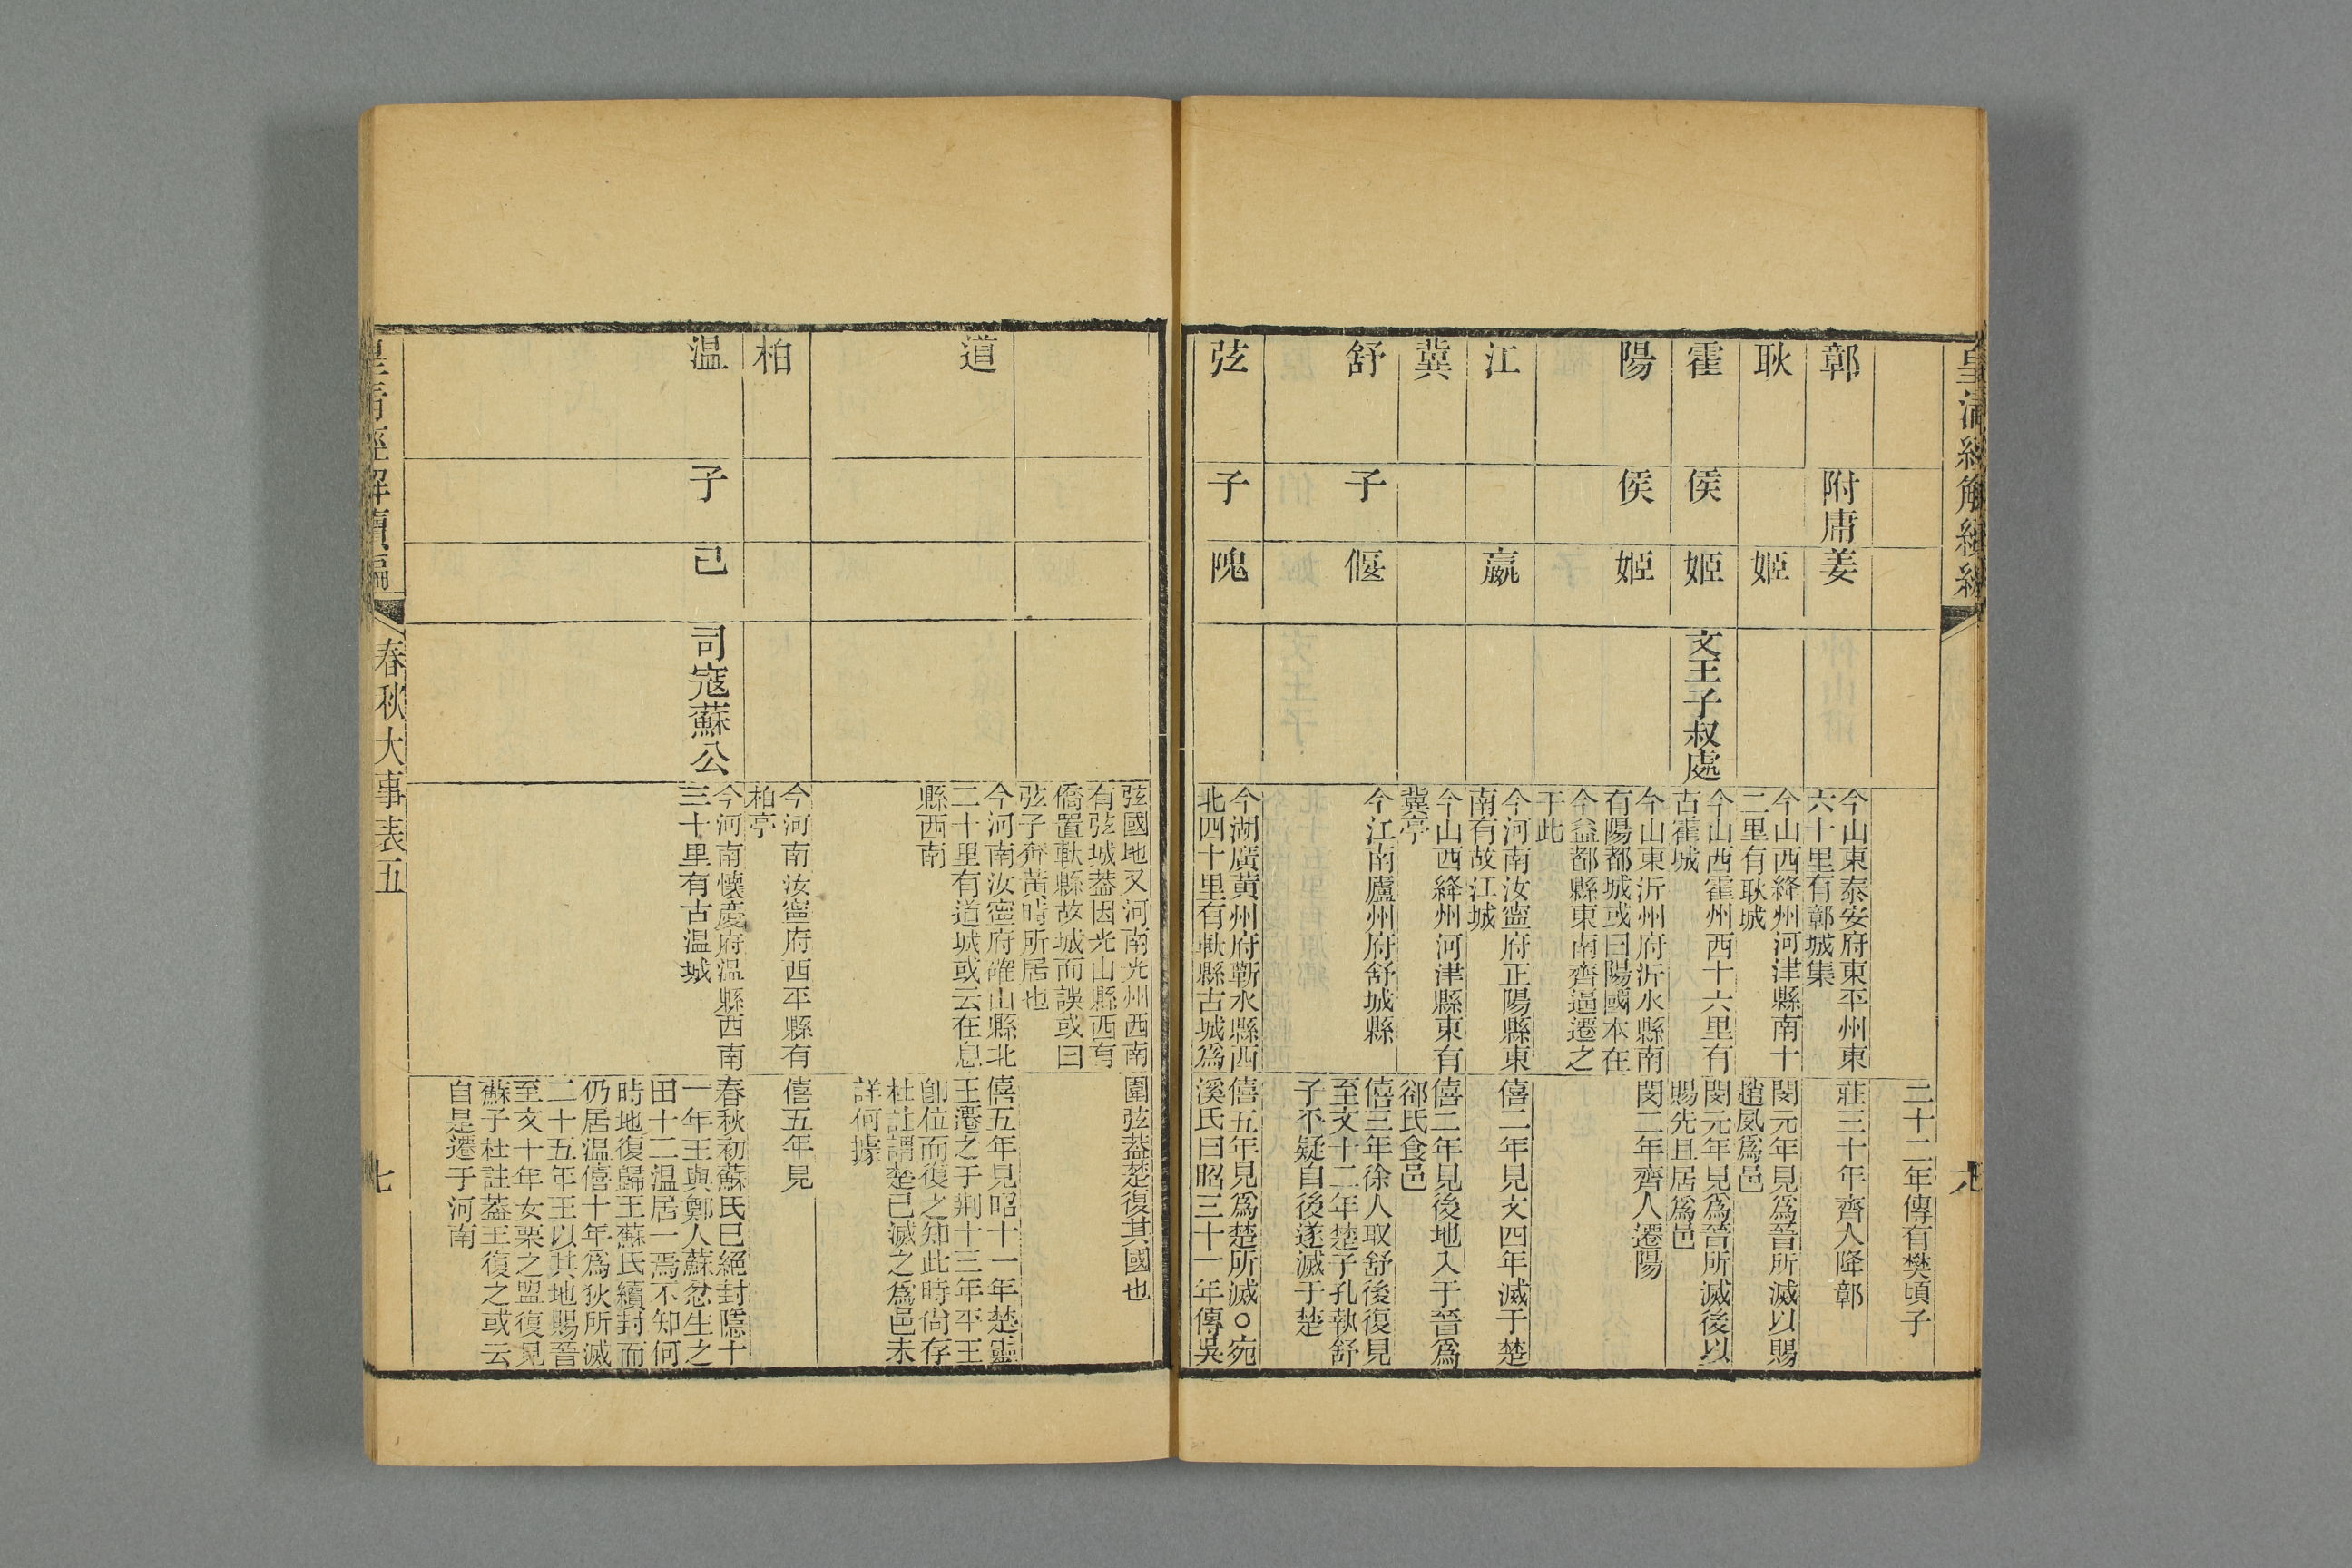 二十二年傳有樊頃子
鄣
附庸
姜
今山東泰安府東平州東
六十里有鄣城集
莊三十年齊人降鄣
耿
姬
今山西絳州河津縣南十
二里有耿城
閔元年見爲晉所滅以賜
趙夙爲邑
霍
侯
姬
文王子叔處
今山西霍州西十六里有
古霍城
閔元年見爲晉所滅後以
賜先且居爲邑
陽
侯
姬
今山東沂州府沂水縣南
有陽都城或曰陽國本在
今益都縣東南齊逼遷之
于此
閔二年齊人遷陽
江
嬴
今河南汝寧府正陽縣東
南有故江城
僖二年見文四年滅于楚
冀
今山西絳州河津縣東有
冀亭
僖二年見後地入于晉爲
郤氏食邑
舒
子
偃
今江南廬州府舒城縣
僖三年徐人取舒後復見
至文十二年楚子孔執舒
子平疑自後遂滅于楚
弦
子
隗
今湖廣黃州府蘄水縣西
北四十里有軑縣古城爲
僖五年見爲楚所滅○宛
溪氏曰昭三十一年傳吳
弦國地又河南光州西南
有弦城葢因光山縣西有
僑置軑縣故城而誤或曰
弦子奔黃時所居也
圍弦葢楚復其國也
道
今河南汝寧府確山縣北
二十里有道城或云在息
縣西南
僖五年見昭十一年楚靈
王遷之于荆十三年平王
卽位而復之知此時尙存
杜註謂楚已滅之爲邑未
詳何據
柏
今河南汝寧府西平縣有
柏亭
僖五年見
温
子
己
司寇蘇公
今河南懷慶府温縣西南
三十里有古温城
春秋初蘇氏已絕封隱十
一年王與鄭人蘇忿生之
田十二温居一焉不知何
時地復歸王蘇氏續封而
仍居温僖十年爲狄所滅
二十五年王以其地賜晉
至文十年女栗之盟復見
蘇子杜註葢王復之或云
自是遷于河南
春秋大事表五
七